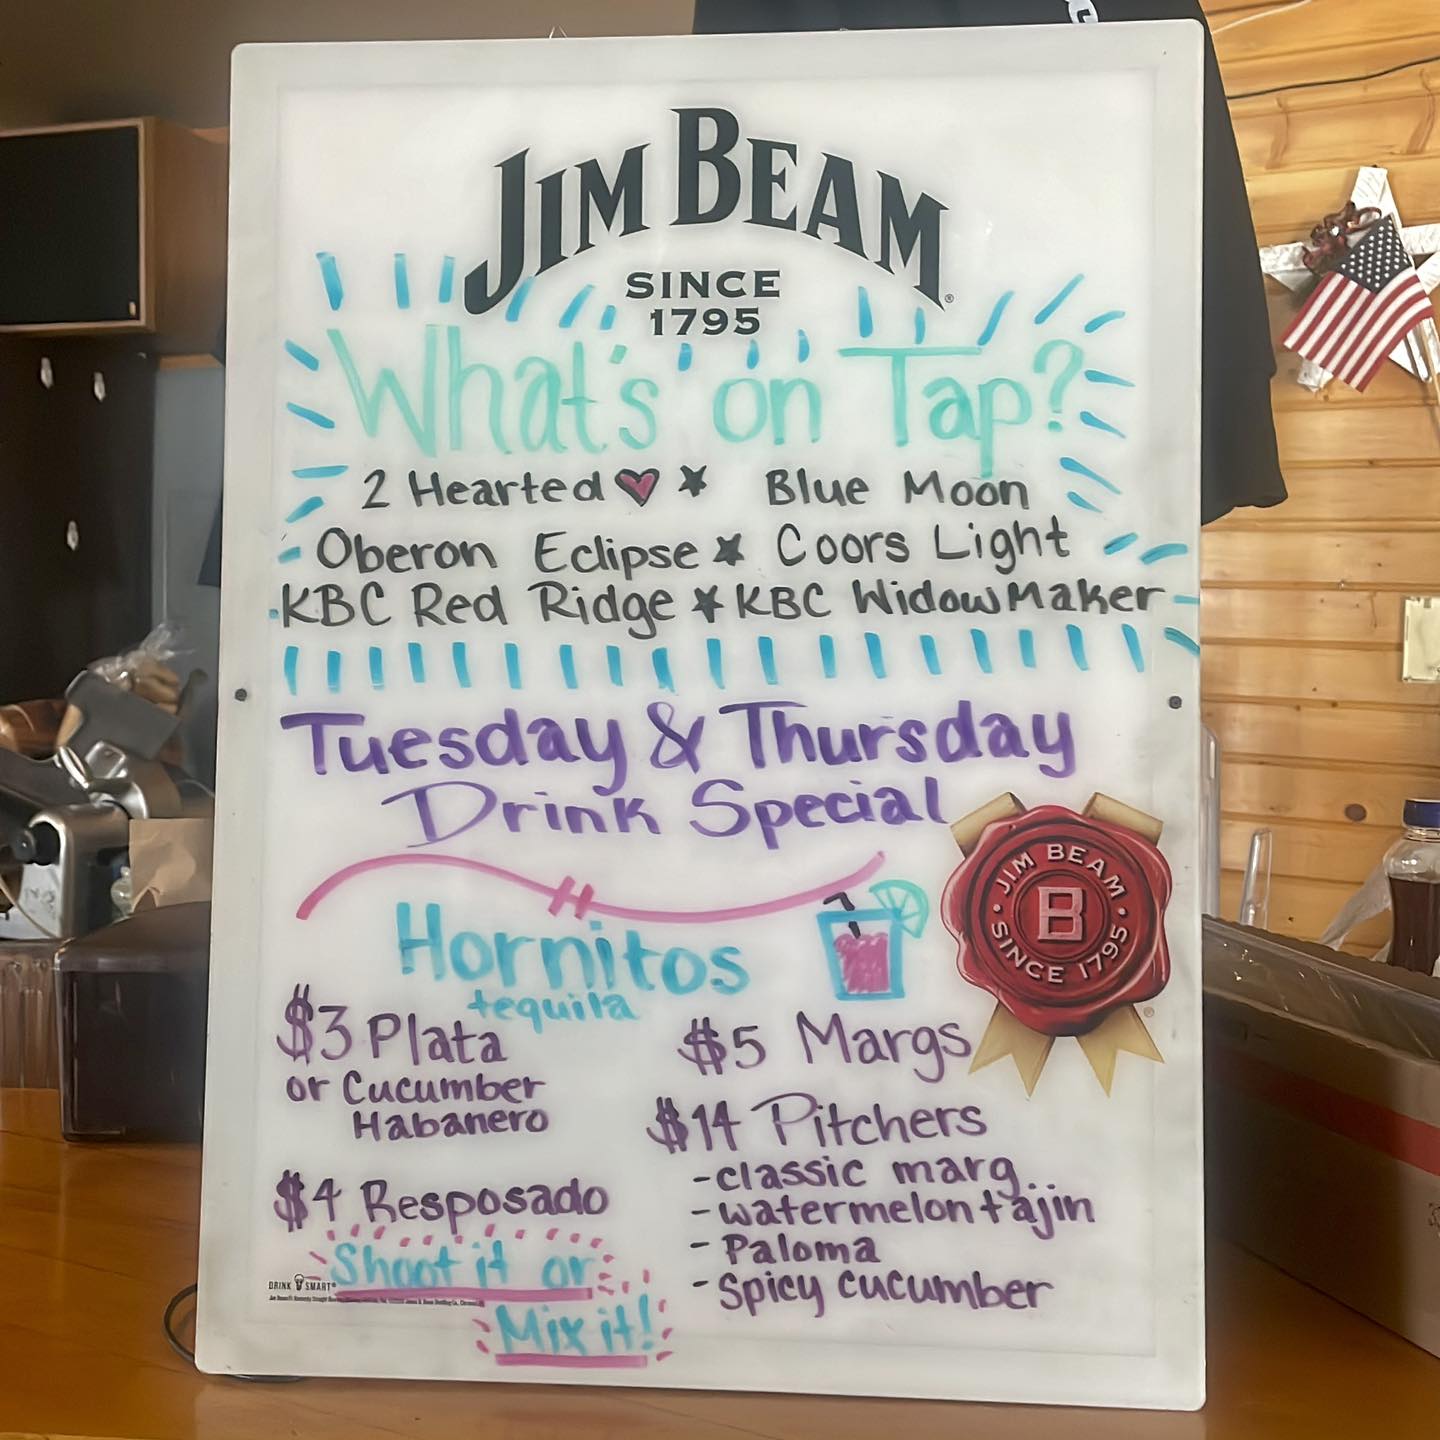 JIM BEAM®
SINCE
1795
What's on Tap?
2 Hearted Blue Moon
Oberon Eclipse Coors Light
KBC Red Ridge KBC WidowMaker
Tuesday & Thursday
Drink Special
Hornitos
tequila
$3 Plata
or Cucumber
Habanero
$4 Resposado
Shoot it or
Mix it!
$5 Margs
$14 Pitchers
-classic marg
-watermelon tajin
- Paloma
-Spicy cucumber
JIM BEAM
B
SINCE 1795
DRINK SMART®